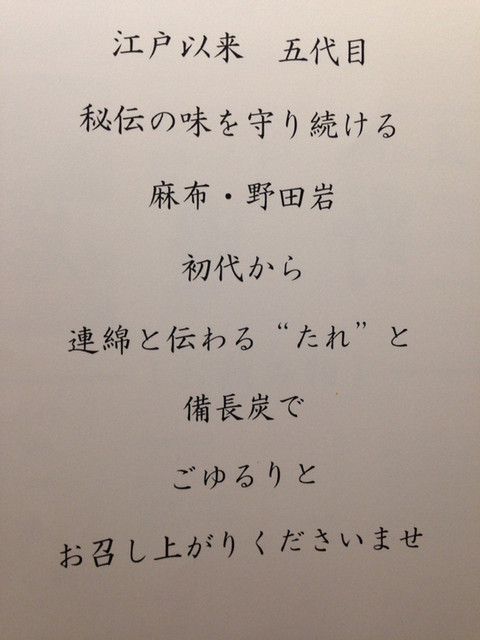 江戸以来　五代目
秘伝の味を守り続ける
麻布・野田岩
初代から
連綿と伝わる“たれ”と
備長炭で
ごゆるりと
お召し上がりくださいませ